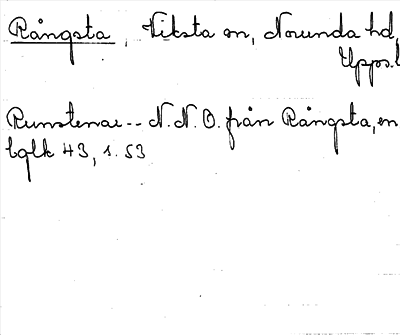 Rångsta, Viksta sn, Norunda hd,
Upps.l
Runstenar-- N.N.O. från Rångsta, en
bqlk 43, s. 53